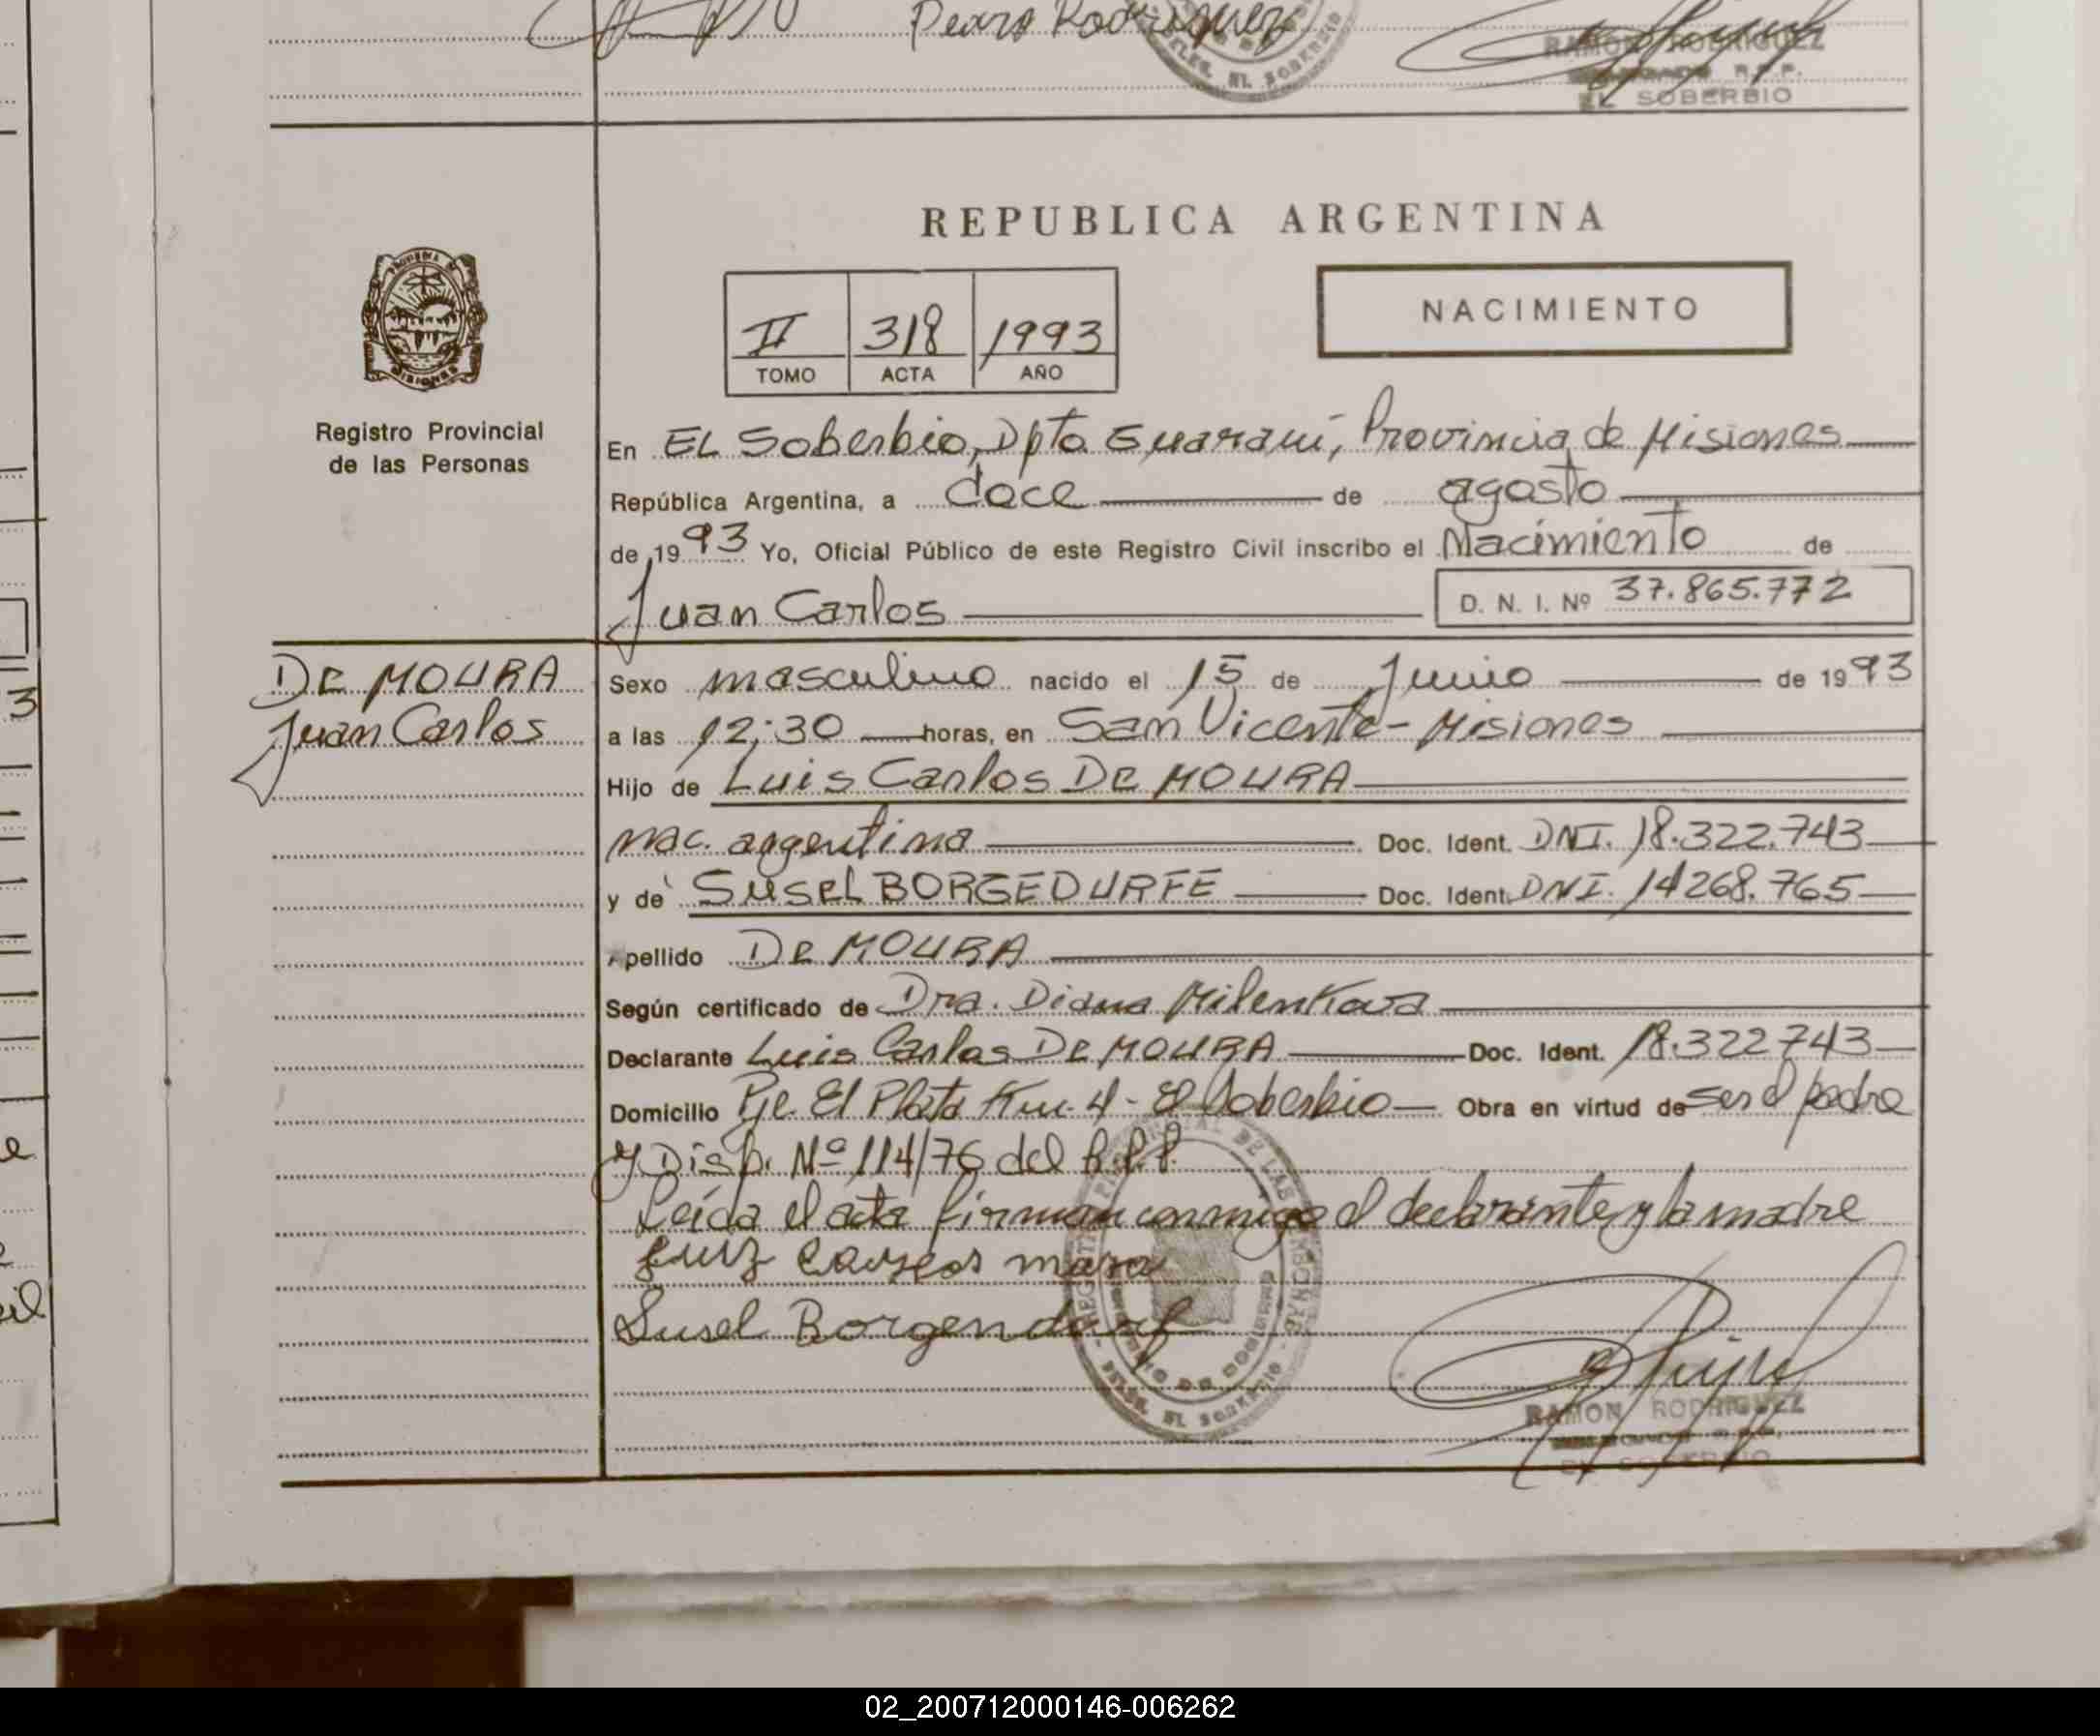 Pedro Rodriguez
RAMON RODRIGUEZ
EL SOBERBIO
REPUBLICA ARGENTINA
NACIMIENTO
II 318 1993
TOMO ACTA AÑO
Registro Provincial
de las Personas
En EL Soberbio, Dpto Guaraní, Provincia de Misiones
República Argentina, a doce de agosto
de 1993 Yo, Oficial Público de este Registro Civil inscribo el Nacimiento de
Juan Carlos D. N. I. Nº 37.865.772
DE MOURA
Juan Carlos
Sexo masculino nacido el 15 de Junio de 1993
a las 12:30 horas, en San Vicente - Misiones
Hijo de Luis Carlos DE MOURA
nac. argentina Doc. Ident. DNI. 18.322.743
y de SUSEL BORGEDURFE Doc. Ident. DNI. 14268.765
Apellido DE MOURA
Según certificado de Dra. Diana Milenkova
Declarante Luis Carlos DE MOURA Doc. Ident. 18.322743
Domicilio Pje. El Plata Km. 4 - El Soberbio Obra en virtud de ser el padre
y Disp. Nº 114/76 del R.P.P.
Leída el acta firman conmigo el declarante y la madre
Susel
RAMON RODRIGUEZ
EL SOBERBIO
02_200712000146-006262